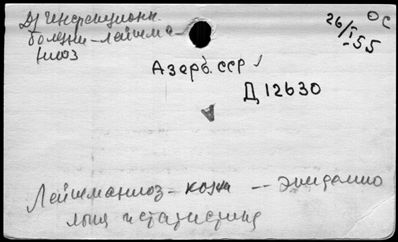 Д) Инфекционн.
болезни - лейшма -
ниоз
26/I -55
ОС
Азерб. сср
Д 12630
Лейшманиоз - кожи -- Эпидемио
логия и статистика